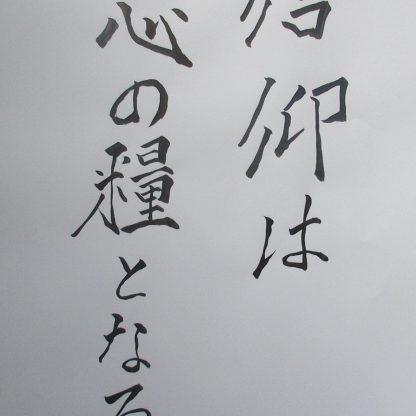 信仰は
心の糧となる